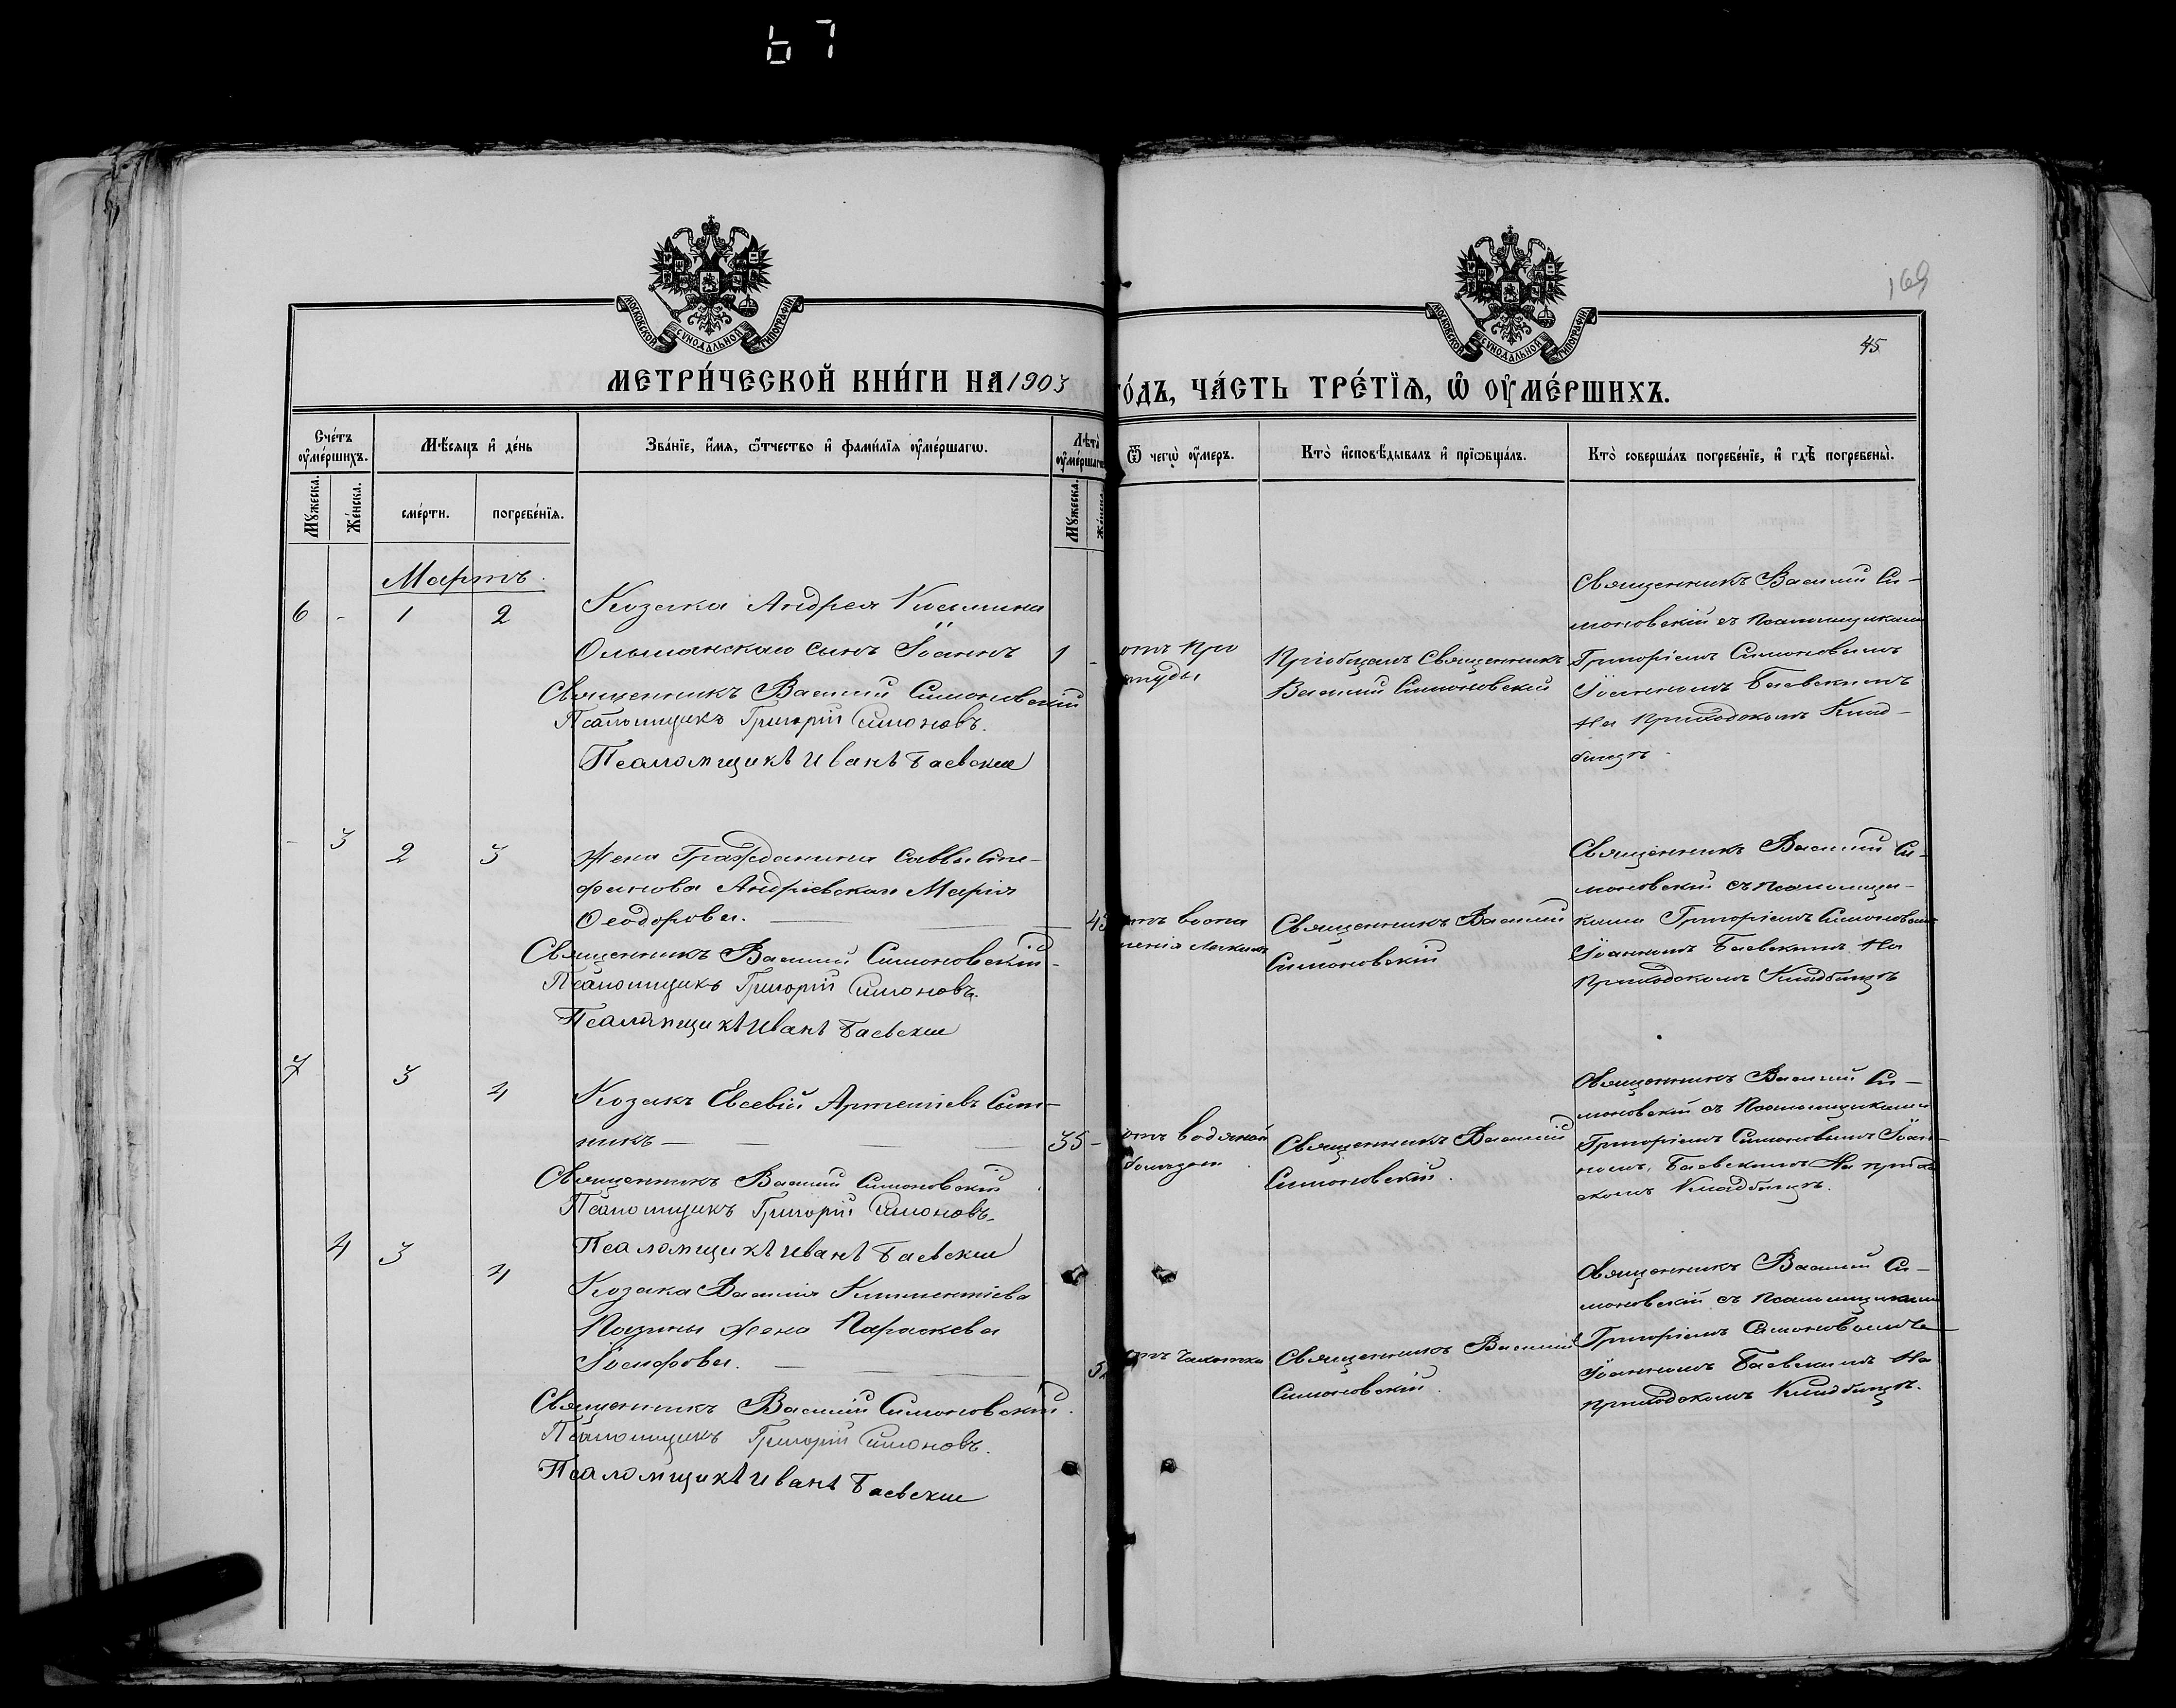 67
169
45
МОСКОВСКОЙ СУНОДАЛЬНОЙ ТИПОГРАФIИ
МОСКОВСКОЙ СУНОДАЛЬНОЙ ТИПОГРАФIИ
МЕТРИ́ЧЕСКОЙ КНИ́ГИ НА 1903
ГО́ДЪ, ЧА́СТЬ ТРЕ́ТIѦ, Ѡ ОУ҆МЕ́РШИХЪ.
Сче́тъ оу҆ме́ршихъ.
Мѣ́сяцъ и҆ де́нь
Зва́нїе, и҆́мѧ, ѻ҆́тчество и҆ фами́лїѧ оу҆ме́ршагѡ.
Лѣ́та оу҆ме́ршагѡ
Ѿ чегѡ̀ оу҆́меръ.
Кто̀ и҆сповѣ́дывалъ и҆ прїѡбща́лъ.
Кто̀ соверша́лъ погребе́нїе, и҆ гдѣ̀ погребены̀.
Мꙋ́жеска.
Же́нска.
сме́рти.
погребе́нїѧ.
Мꙋ́жеска.
Мартъ.
6 - 1 2
Козака Андрея Косьмина
Ольшанскаго сынъ Іоаннъ 1 -
Священникъ Василий Симоновскій
Псаломщикъ Григорій Симоновъ.
Псаломщикъ Иванъ Баевскій
отъ про
студы
Пріобщалъ Священникъ
Василий Симоновскій
Священникъ Василий Си-
моновскій съ псаломщиками
Григоріемъ Симоновымъ
Іоанномъ Баевскимъ
На приходскомъ Клад-
бищѣ.
- 3 2 3
Жена Гражданина Саввы Сте-
фанова Андріевскаго Марія
Ѳеодорова. 43
Священникъ Василий Симоновскій
Псаломщикъ Григорій Симоновъ.
Псаломщикъ Иванъ Баевскій
отъ воспа
ленія легкихъ
Священникъ Василий
Симоновскій
Священникъ Василий Си-
моновскій съ псаломщи-
ками Григоріемъ Симоновымъ
Іоанномъ Баевскимъ На
приходскомъ Кладбищѣ
7 3 4
Козакъ Евсевій Артеміевъ Сот-
никъ 35 -
Священникъ Василий Симоновскій
Псаломщикъ Григорій Симоновъ.
Псаломщикъ Иванъ Баевскій
отъ водяной
болѣзни
Священникъ Василий
Симоновскій.
Священникъ Василий Си-
моновскій съ Псаломщиками
Григоріемъ Симоновымъ Іоан-
номъ Баевскимъ На прихо
скомъ Кладбищѣ.
4 3 4
Козака Василія Климентіева
жена Параскева
Іосифова.
Священникъ Василій Симоновскій.
Псаломщикъ Григорій Симоновъ.
Псаломщикъ Иванъ Баевскій
отъ чахотки
Священникъ Василий
Симоновскій.
Священникъ Василий Си-
моновскій съ Псаломщиками
Григоріемъ Симоновымъ
Іоанномъ Баевскимъ На
приходскомъ Кладбищѣ.